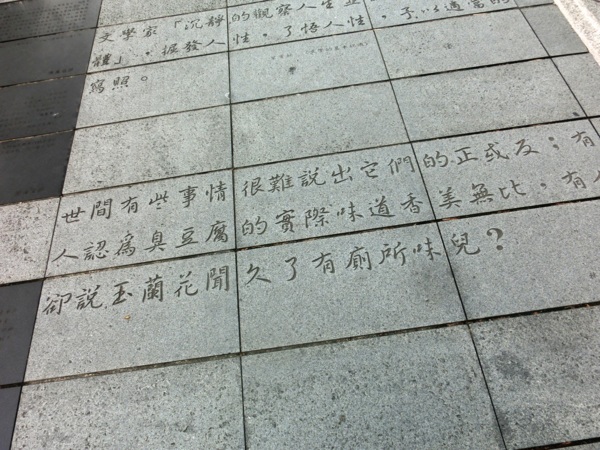 文學家「沉靜的觀察人生並
體」，掘發人性，了悟人性，予以適當的
寫照。
世間有些事情很難說出它們的正或反；有
人認為臭豆腐的實際味道香美無比，有人
卻說玉蘭花聞久了有廁所味兒？